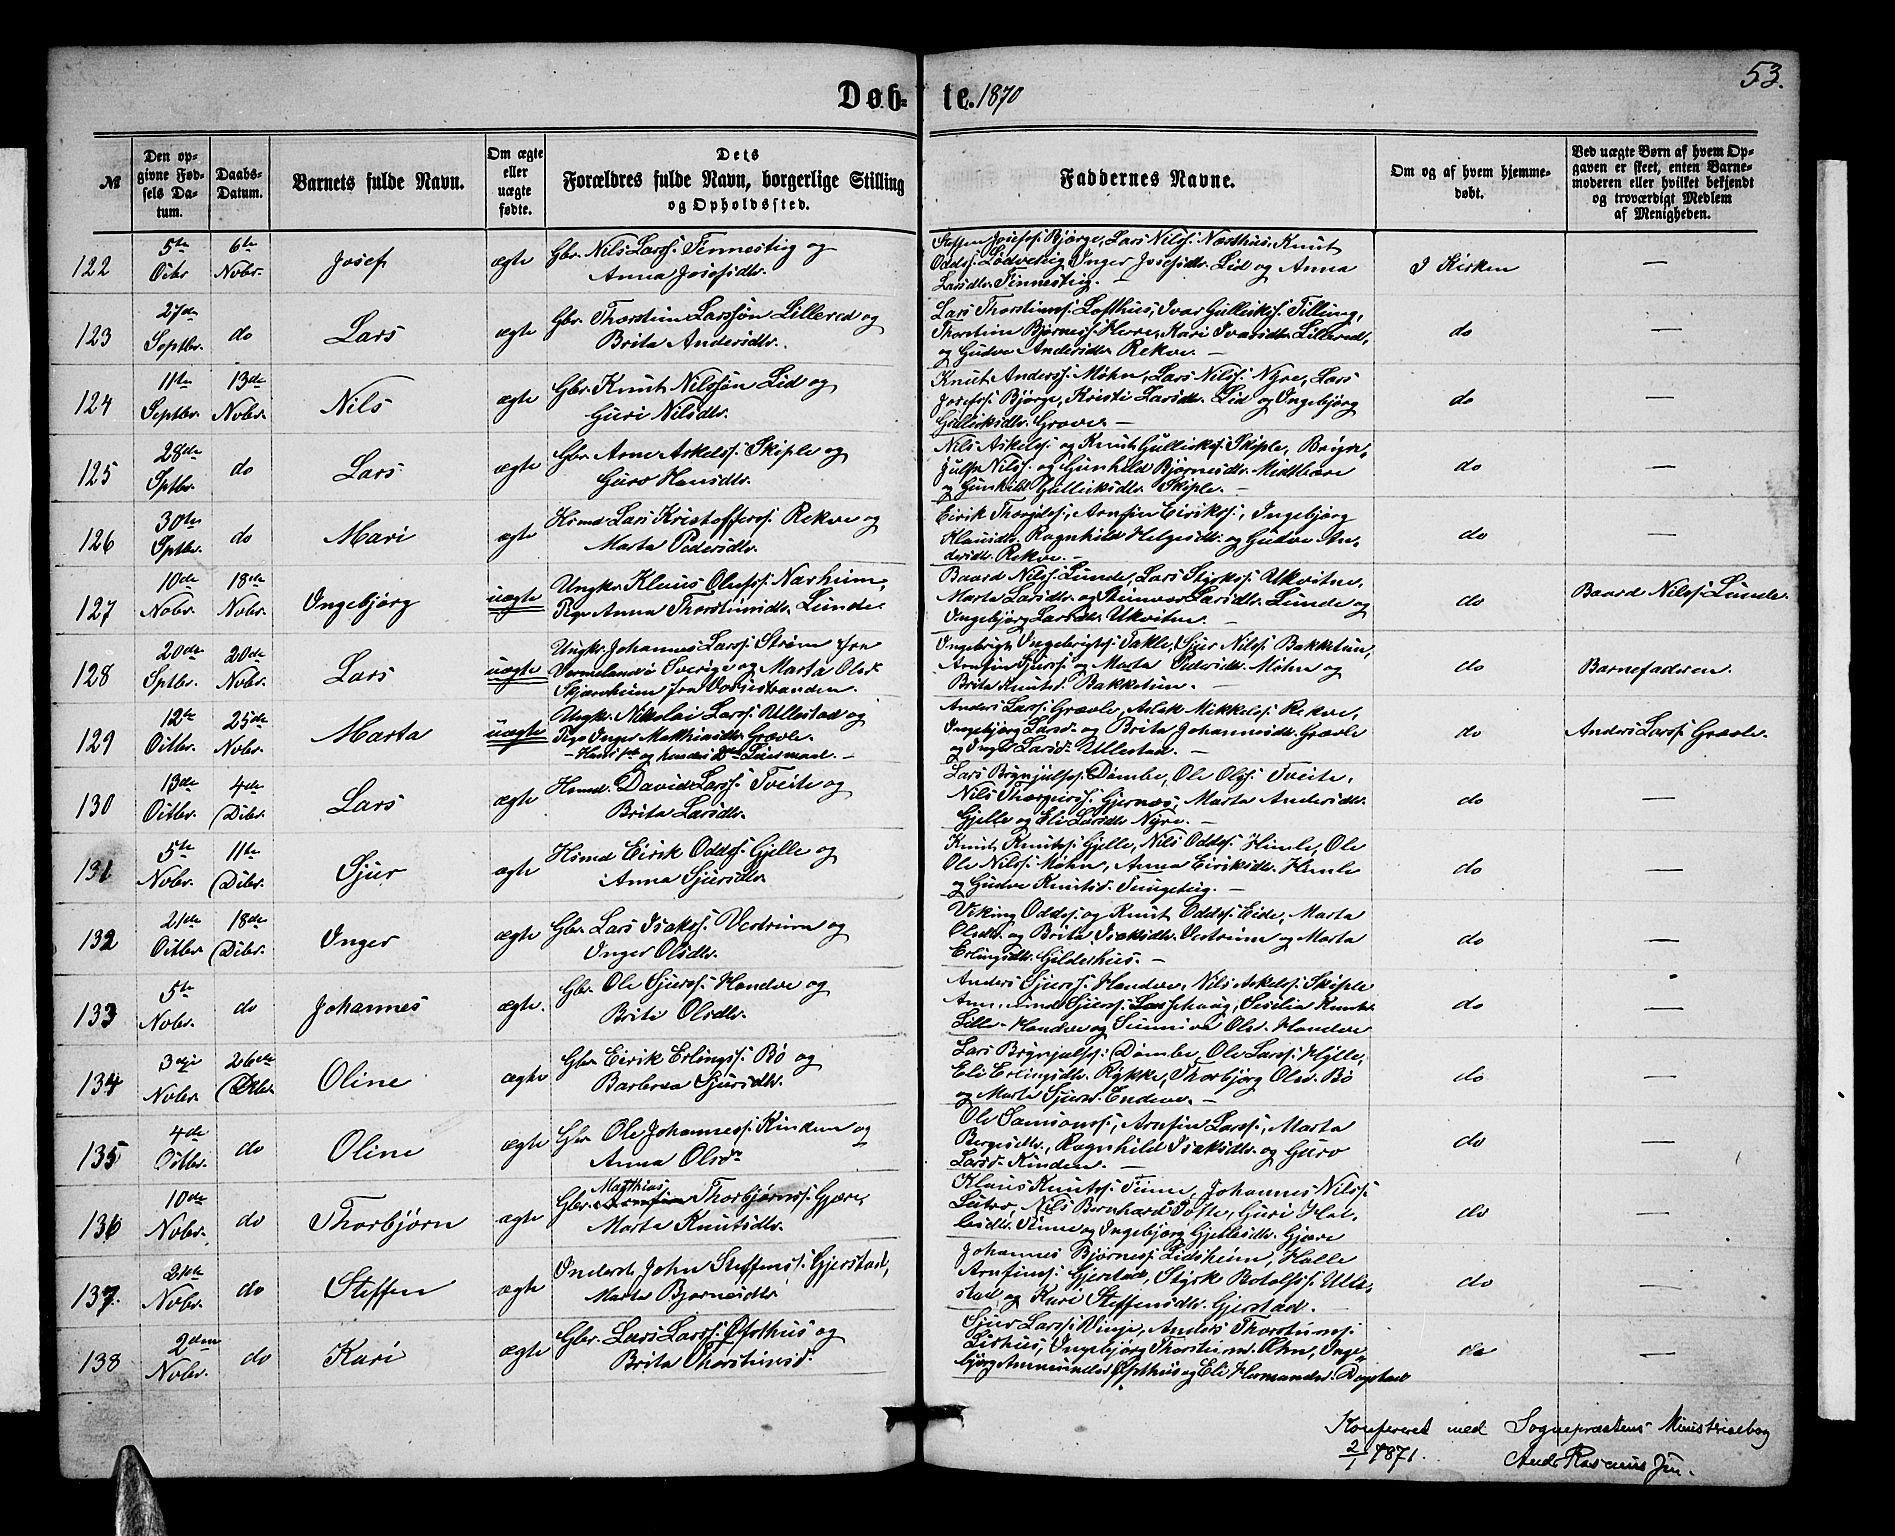 Døb-
te. 1870
53.
№
Den opgivne Fødsels Datum.
Daabs-Datum.
Barnets fulde Navn.
Om ægte eller uægte fødte.
Dets Forældres fulde Navn, borgerlige Stilling og Opholdssted.
Faddernes Navne.
Om og af hvem hjemmedøbt.
Ved uægte Børn af hvem Opgaven er skeet, enten Barnemoderen eller hvilket bekjendt og troværdigt Medlem af Menigheden.
122
5te Octbr
6te Novbr.
Josef
ægte
Gbr. Nils Larss: Finnestig og
Anna Josefsdtr.
Steffen Josefss: Bjørge, Lars Nilss: Næsthus, Knut
Oddss: Lødveseig, Inger Josefsdtr. Lid og Anna
Larsdtr. Finnestig. —
I Kirken
—
123
27de Septbr.
do
Lars
ægte
Gbr. Thorstein Larssøn Lillered og
Brita Andersdtr.
Lars Thorsteinss: Lofthus, Ivar Gullikss: Tillung,
Thorstein Bjørness: Horre, Kari Ivarsdtr. Lillered,
og Gudve Andersdtr. Rekve. —
do
—
124
11te Septbr.
13de Novbr.
Nils
ægte
Gbr. Knut Nilssøn Lid og
Guri Nilsdtr.
Knut Anderss: Møhn, Lars Nilss: Nyre, Lars
Josefss: Bjørge, Kristi Larsdtr. Lid og Ingebjørg
Gulleiksdtr. Grove —
do
—
125
28de Sptbr.
do
Lars
ægte
Gbr. Arne Askelss: Skiple og
Guro Hansdtr.
Nils Askelss: og Knut Gullikss: Skiple, Bryn-
julf Nilss: og Gunhild Bjørnesdtr. Midthære
og Gunhild Gulleiksdtr. Skiple. —
do
—
126
30te Sptbr.
do
Mari
ægte
Hsmd. Lars Kristofferss: Rekve og
Marta Pedersdtr.
Eirik Thorgilss:, Arnfin Eirikss:, Ingebjørg
Klausdtr., Ragnhild Helgesdtr. og Gudve An-
dersdtr. Rekve. —
do
—
127
10de Novbr.
18de Novbr.
Ingebjørg
uægte
Ungk. Klaus Olufss: Narheim,
Pige Anna Thorsteinsdtr. Lunde.
Baard Nilss: Lunde, Lars Styrkss: Ukvitne,
Marta Larsdtr. og Steinvor Larsdtr. Lunde og
Ingebjørg Larsdtr. Ukvitne.
do
Baard Nilss: Lunde.
128
20de Sptbr.
20de Novbr.
Lars
uægte
Ungk. Johannes Larss: Strøm fra
Vermeland i Sverige og Marta Olsd.
Skjærsheim fra Vossestranden.
Ingebrigt Ingebrigtss: Takle, Sjur Nilss: Bakketun,
Arnfin Sjurss: og Marta Oldsdtr. Møhn og
Brita Knutsd. Bakketun. —
do
Barnefaderen.
129
12te Octbr.
25de Novbr.
Marta
uægte
Ungk. Nikolai Larss: Ullestad og
Pige Inger Matthiasdtr. Græve.
— Hans 1ste og hendes 2det Leiermaal. —
Anders Larss: Græve, Aslak Mikkelss: Rekve,
Ingebjørg Larsd. og Brita Johannesdtr. Græve
og Inga Larsd. Ullestad. —
do
Anders Larss: Græve.
130
13de Octbr.
4de Decbr.
Lars
ægte
Hsmd. David Larss: Tveite og
Brita Larsdtr.
Lars Brynjulfss: Dømbe, Ole Olss: Tveite,
Nils Thorgeirss: Gjernes, Marta Andersdtr.
Gjelle og Eli Larsdtr. Nyre. —
do
—
131
5te Novbr.
11te Decbr.
Sjur
ægte
Hsmd Eirik Oddss: Gjelle og
Anna Sjursdtr.
Knut Knutss: Gjelle, Nils Oddss: Himle, Ole
Ole Nilss: Møhn, Anna Eiriksdtr. Himle
og Gudve Knutsd. Tungeteig. —
do
—
132
21de Octbr.
18de Decbr.
Inger
ægte
Gbr. Lars Isakss: Vestreim og
Inger Olsdtr.
Viking Oddss: og Knut Oddss: Eide, Marta
Olsdtr. og Brita Isaksdtr. Vestreim og Marta
Erlingsdtr. Gilderhus. —
do
—
133
5te Novbr.
do
Johannes
ægte.
Gbr. Ole Sjurss: Handve og
Brita Olsdtr.
Anders Sjurss: Handve, Nils Askelss: Skiple
Sjurss: Seselia Knuts.
Lille-Handve og Sunniva Olsd. Handve
do
—
134
3die Novbr.
26de Decbr.
Oline
ægte
Gbr. Eirik Erlingss: Bø og
Barbroa Sjursdtr.
Lars Brynjulss: Dømbe, Ole Larss: Hylle,
Eli Erlingsdtr. Rykke, Thorbjørg Olsd. Bø
og Marta Sjursd. Endeve. —
do
—
135
4de Octbr.
do
Oline
ægte
Gbr. Ole Johanness: Kinden og
Anna Olsdr
Ole Samsonss:, Arnfin Larss:, Marta
Bergesdtr., Ragnhild Isaksdtr. og Guro
Larsd. Kinden. —
do
—
136
10de Novbr.
do
Thorbjørn
ægte
Matthias
Gbr. Thorbjørnss: Gjære,
Marta Knutsdtr.
Klaus Knutss: Finne, Johannes Nilss:
Lutro, Nils Bernhard Tofte, Guri Hal-
lesdtr. Finne og Ingebjørg Gjellesdtr. Gjære
do
—
137.
21de Novbr.
do
Steffen
ægte
Inderst. John Steffenss: Gjerstad,
Marta Bjørnesdtr.
Johannes Bjørness: Lidsheim, Halle
Arnfinss: Gjerstad, Styrk Botolfss: Ulle-
stad og Kari Steffensdtr. Gjerstad.
do
—
138
2den Novbr.
do
Kari
ægte
Gbr. Lars Larss: Øfsthus og
Brita Thorsteinsd.
Sjur Larss: Vinje, Anders Thorsteinss:
Lirhus, Ingebjørg Thorsteinsd. Æhn, Inge-
bjørg Ammundsd. Øfsthus og Eli Hermandsd. Dagstad
do
—
Konfereret med Sognepræstens Ministerialbog
2/1 1871. Andr Rasmus Jun.